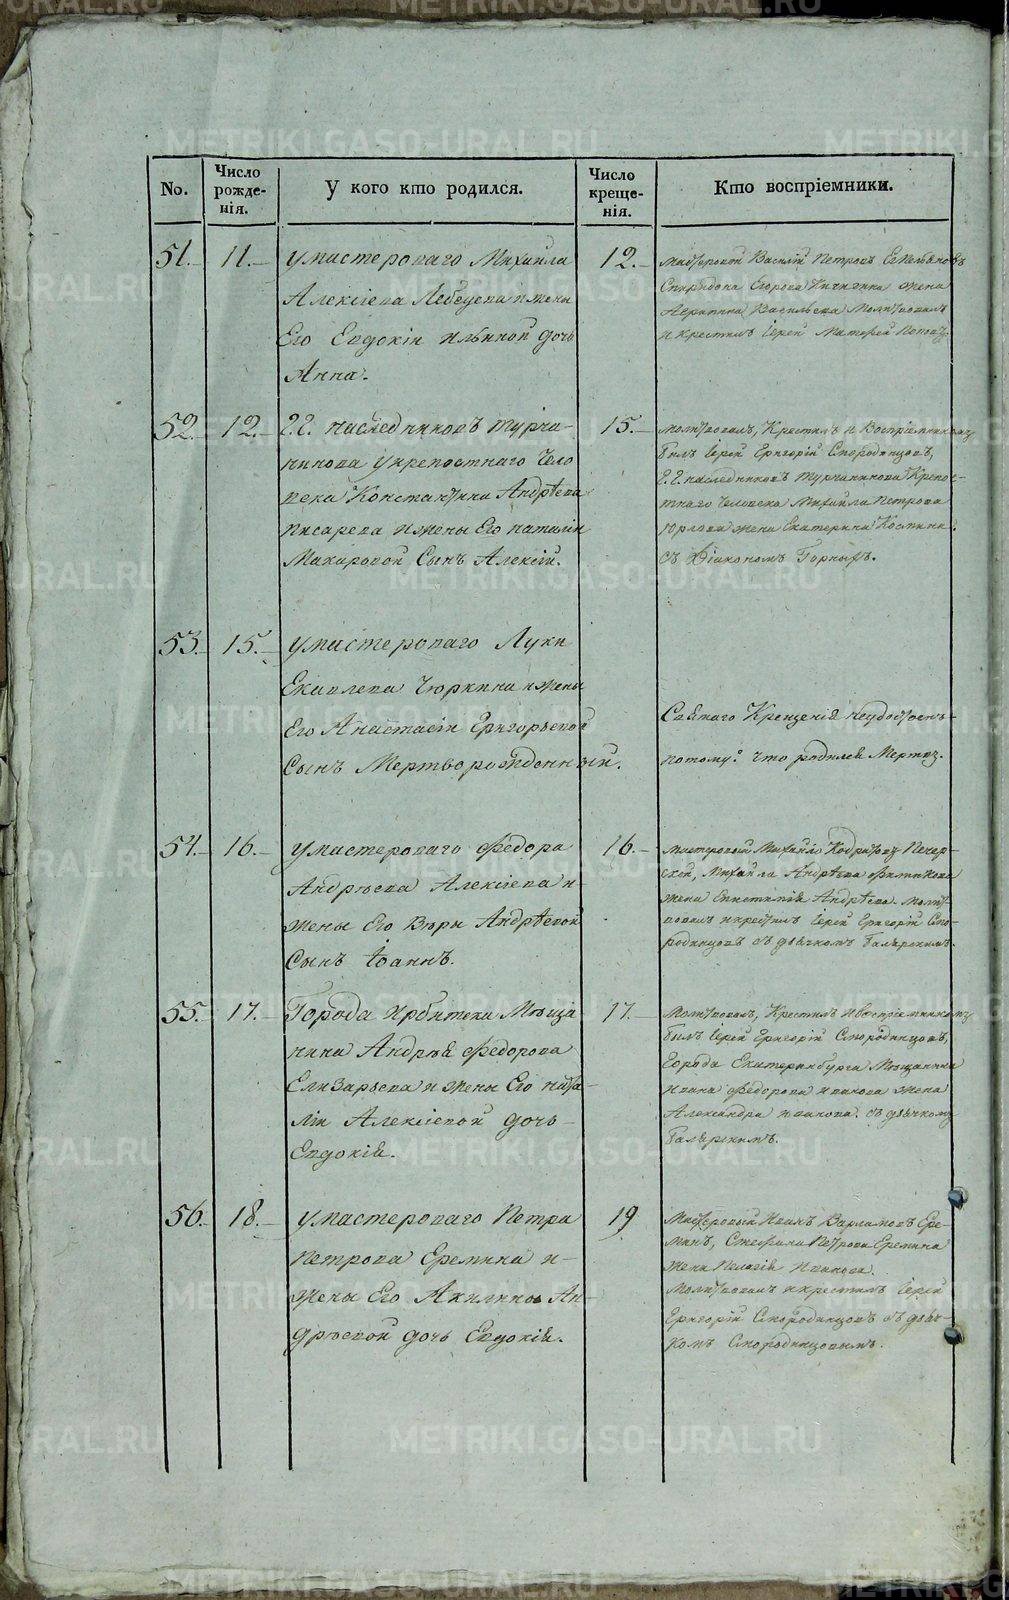 No.
Число рожде-нія.
У кого кто родился.
Число креще-нія.
Кто воспріемники.
51. 11. у мастероваго Михаила
Алексіева Лебедева и жены
Его Евдокіи Ильиной дочь
Анна.
12. Мастеровой Василій Петровъ
Спиридона Егорова жена
Васильева Молитвовалъ
и крестилъ Іерей Матфей Поповъ.
52. 12. Г.Г. наследниковъ Турча-
нинова у крепостнаго чело
века Константина Андрѣева
Писарева и жены Его Наталіи
Макаровой Сынъ Алексій.
15. Молитвовалъ, Крестилъ и Воспріемникомъ
былъ Іерей Григорій Смородинцовъ,
Г.Г. наследниковъ Турчанинова Крепос-
тнаго человека Михаила Петрова
жена Екатерина Космина.
съ Діакономъ Горныхъ.
53. 15. у мастероваго Луки
Чюркина и жены
Его Анастасіи Григорьевой
Сынъ Мертворожденный.
Святаго Крещенія неудостоенъ
потому: что родился Мертвъ.
54. 16. у мастероваго Федора
Андрѣева Алексіева и
жены Его Вѣры Андрѣевой
Сынъ Іоаннъ.
16. Мастеровой Михайло
Михаила Андрѣева
жена Андрѣева. Молит-
вовалъ и крестилъ Іерей Григорій Смо-
родинцовъ съ дьячкомъ
55. 17. Города Ирбитска Мѣща
нина Андрѣя Федорова
Елизарьева и жены Его Ната-
ліи Алексіевой дочь
Евдокія.
17. Молитвовалъ, Крестилъ и воспріемникомъ
былъ Іерей Григорій Смородинцовъ,
Города Екатеринбурга Мѣщанина
Ивана Федорова Иванова жена
Александра Иванова. съ дьячкомъ
56. 18. у мастероваго Петра
Петрова Еремина и
жены Его Акилины Ан-
дрѣевой дочь Евдокія.
19 Мастеровый Иванъ Варламовъ Ере-
минъ, Стефана Петрова Еремина
жена Пелагія Иванова.
Молитвовалъ и крестилъ Іерей
Григорій Смородинцовъ съ дьяч-
комъ Смородинцовымъ.
METRIKI.GASO-URAL.RU